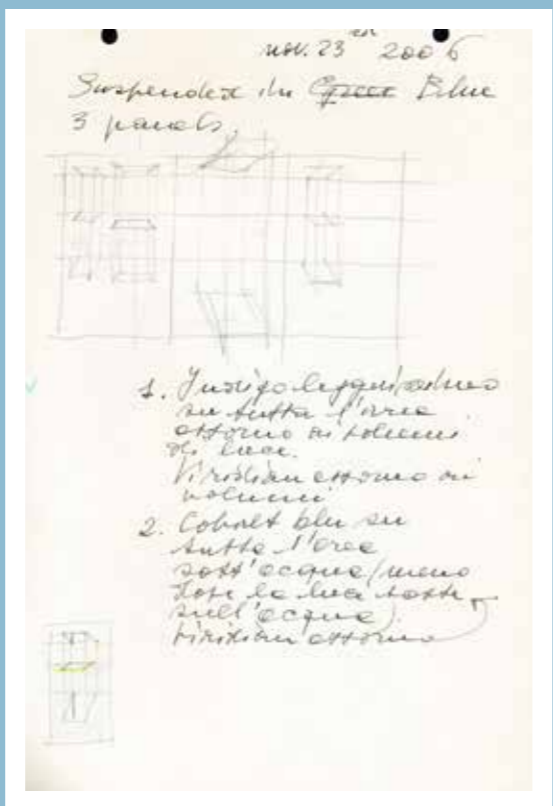 nov. 23 2006
Suspended in Blue
3 panels
1. Indigo leggerissimo
su tutta l'area
attorno ai volumi
di luce.
Viridian attorno ai
volumi
2. Cobalt blu su
tutta l'area
sott'acqua (meno
dove la luce batte
sull'acqua)
viridian attorno